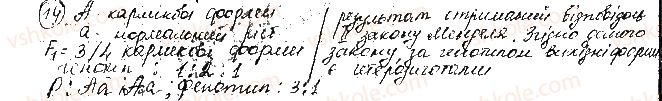 14) А карликові форми
а нормальний ріст
F₁ = 3/4 карликові форми
генотип : 1:2:1
Р: Аа × Аа ; фенотип : 3:1
результат отриманий відповідає
II закону Менделя. Згідно самого
закону, за генотипом вихідні форми
є гетерозиготами